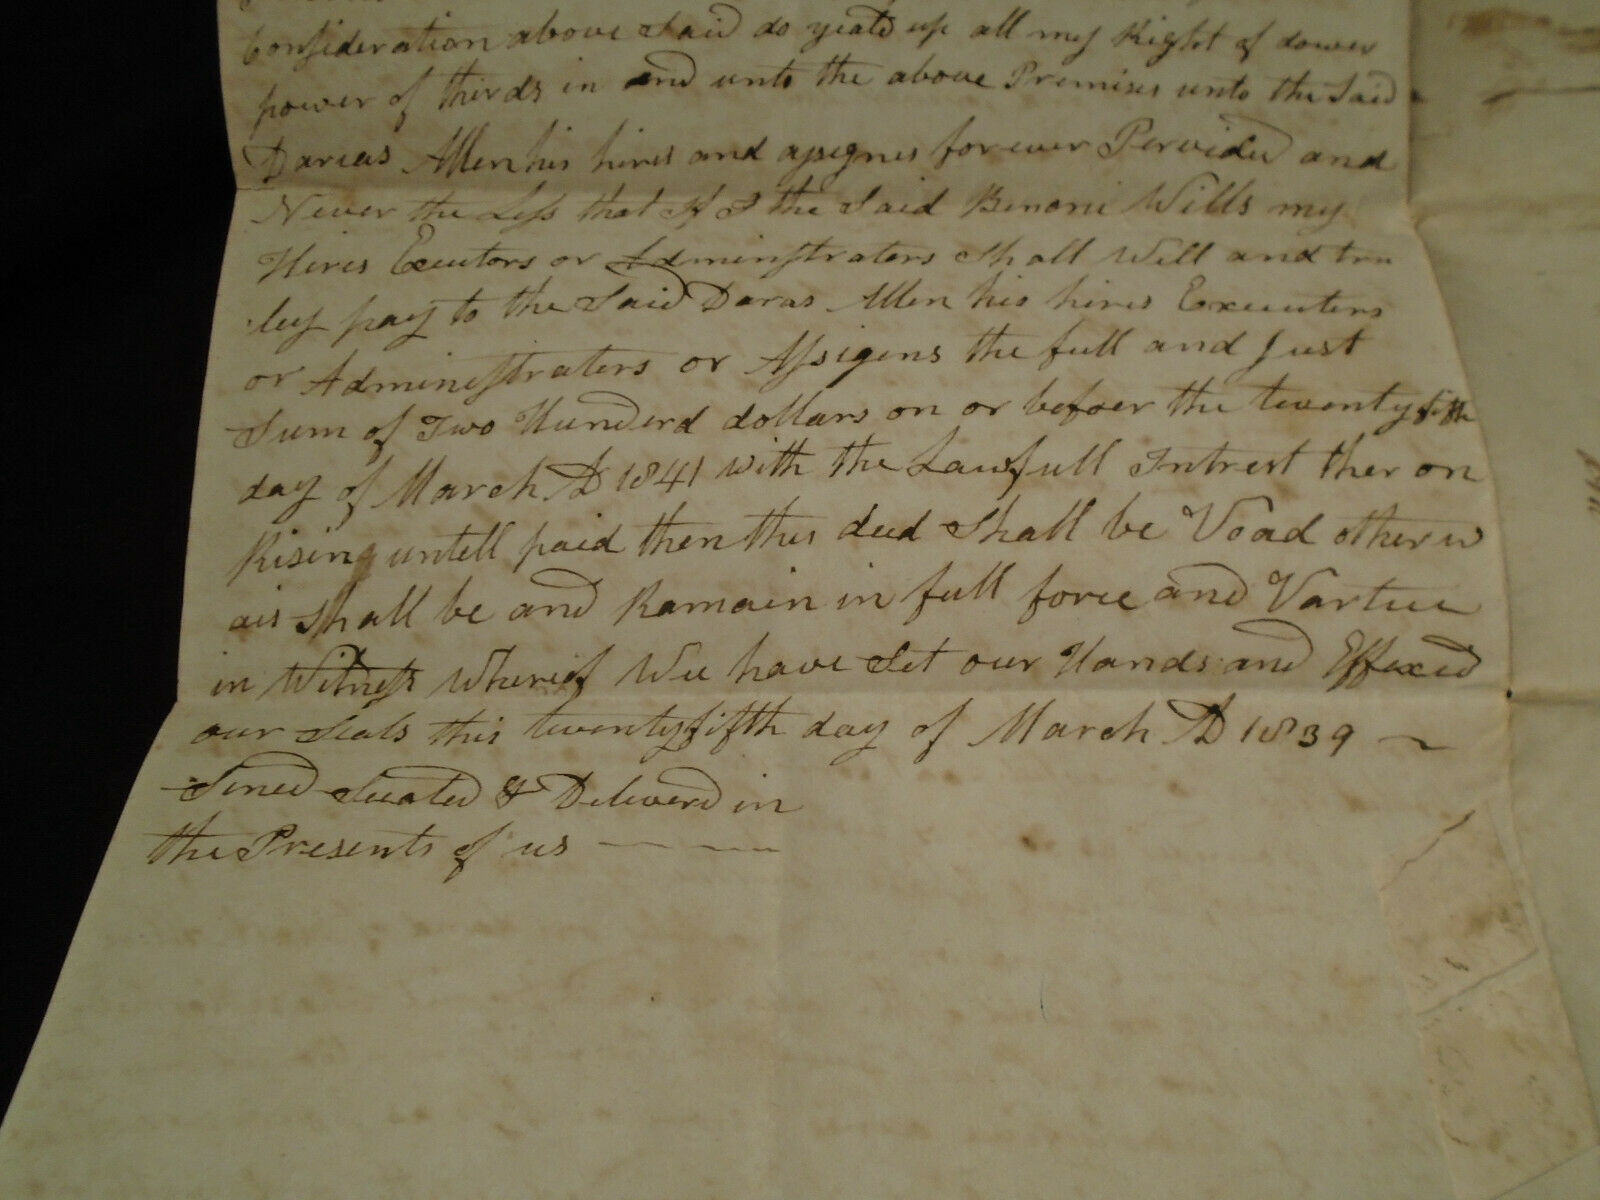 Consideration above Said do yeald up all my Right of dower
power of thirds in and unto the above Premises unto the Said
Darias Allen his hires and assignes forever Pervided and
Never the Less that If I the Said Benoni Wills my
Hires Executors or Adminstraters Shall Will and tru
ley pay to the Said Daras Allen his hires Executers
or Adminestraters or Assigens the full and Just
Sum of Two Hunderd dollars on or befoer the twentyfifth
day of March AD 1841 with the Lawfull Intrest ther on
Rising untell paid then this deed Shall be Voad otherw
ais Shall be and Ramain in full force and Vartue
in Witness Whereof Wee have Set our Hands and Effexed
our Seals this twentyfifth day of March AD 1839
Sined Sealed & Deliverd in
the Presents of us